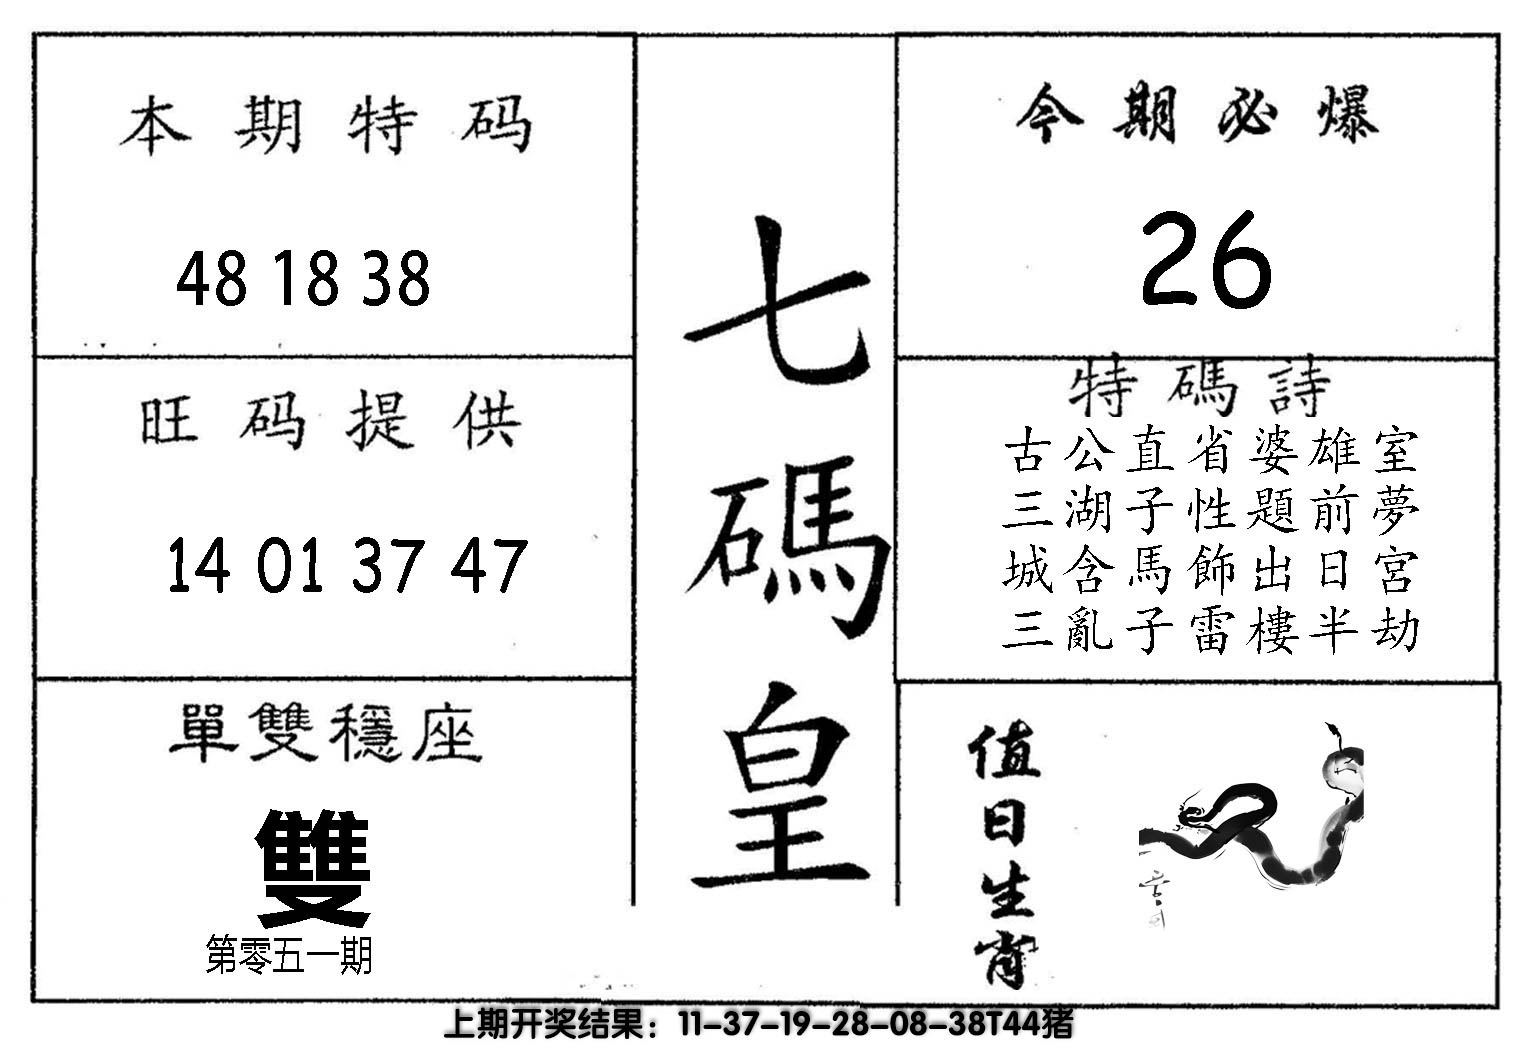 本期特码
48 18 38
旺码提供
14 01 37 47
單雙穩座
雙
第零五一期
七碼皇
今期必爆
26
特碼詩
古公直省婆雄室
三湖子性題前夢
城含馬飾出日宮
三亂子雷樓半劫
值日生肖
上期开奖结果：11-37-19-28-08-38T44猪